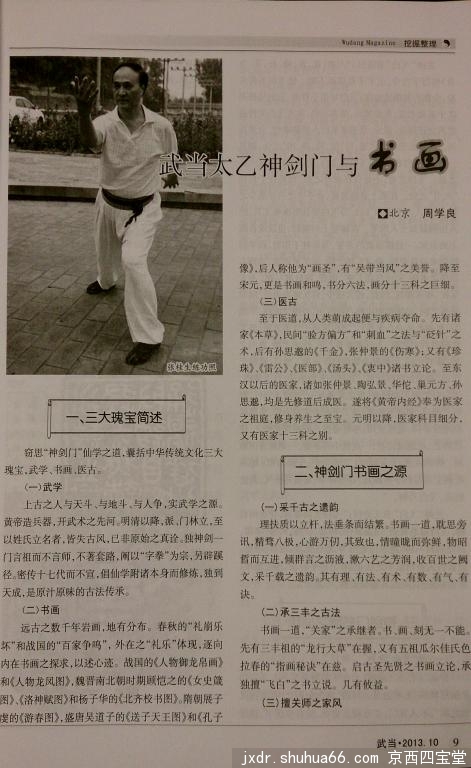 Wudang Magazine 挖掘整理
武当太乙神剑门与书画
北京 周学良
张桂生练功照
一、三大瑰宝简述
窃思“神剑门”仙学之道，囊括中华传统文化三大
瑰宝，武学、书画、医古。
（一）武学
上古之人与天斗、与地斗、与人争，实武学之源。
黄帝造兵器，开武术之先河。明清以降，派、门林立，至
以姓氏立名者，皆失古风，已非原始之真诠。独神剑一
门言祖而不言师，不著套路，阐以“字拳”为宗，另辟蹊
径。密传十七代而不宣，倡仙学附诸本身而修炼，独到
天成，是原汁原味的古法传承。
（二）书画
远古之数千年岩画，地有分布。春秋的“礼崩乐
坏”和战国的“百家争鸣”，外在之“礼乐”体现，逐向
内在书画之探求，以述心迹。战国的《人物御龙帛画》
和《人物龙凤图》，魏晋南北朝时期顾恺之的《女史箴
图》、《洛神赋图》和杨子华的《北齐校书图》。隋朝展子
虔的《游春图》，盛唐吴道子的《送子天王图》和《孔子
像》，后人称他为“画圣”，有“吴带当风”之美誉。降至
宋元，更是书画和鸣，书分六法，画分十三科之巨细。
（三）医古
至于医道，从人类萌成起便与疾病夺命。先有诸
家《本草》，民间“验方偏方”和“刺血”之法与“砭针”之
术，后有孙思邈的《千金》，张仲景的《伤寒》；又有《珍
珠》、《雷公》、《医部》、《汤头》、《衷中》诸书立论。至东
汉以后的医家，诸如张仲景、陶弘景、华佗、巢元方、孙
思邈，均是先修道后成医。遂将《黄帝内经》奉为医家
之祖庭，修身养生之至宝。元明以降，医家科目细分，
又有医家十三科之别。
二、神剑门书画之源
（一）采千古之遗韵
理扶质以立杆，法垂条而结繁。书画一道，耽思旁
讯，精骛八极，心游万仞，其致也，情曈昽而弥鲜，物昭
晢而互进，倾群言之沥液，漱六艺之芳润，收百世之阙
文，采千载之遗韵。其有理、有法、有术、有数、有气、有
诀。
（二）承三丰之古法
书画一道，“关家”之承继者。书、画、刻无一不能。
先有三丰祖的“龙行大草”在握，又有五祖瓜尔佳氏色
拉春的“指画秘诀”在兹。启古圣先贤之书画立论，承
独擅“飞白”之书立说。几有攸益。
（三）擅关师之家风
武当·2013.10 9
jxdr.shuhua66.com 京西四宝堂